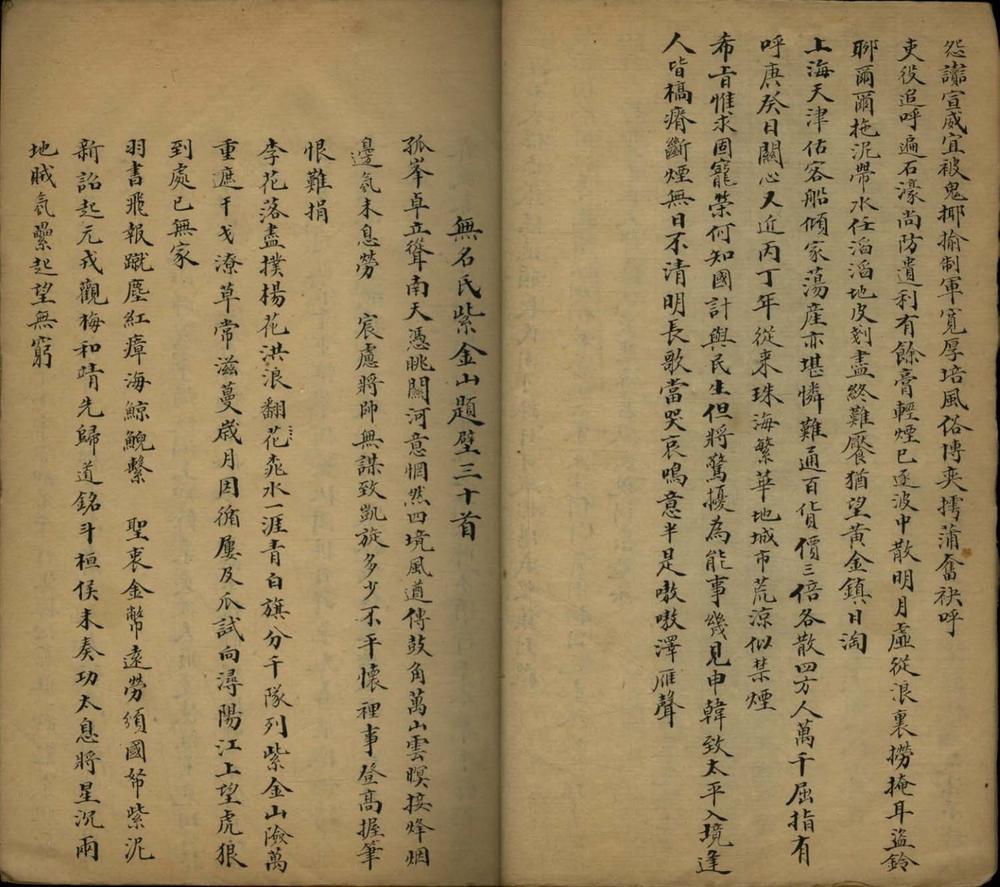 怨讟宣威宜被鬼揶揄制軍寬厚培風俗博奕摴蒱奮袂呼
吏役追呼遍石濠尚防遺利有餘膏輕煙已逐波中散明月虛從浪裏撈掩耳盜鈴
聊爾爾拖泥帶水任滔滔地皮刻盡終難饜猶望黃金鎮日淘
上海天津估客船傾家蕩産亦堪憐難通百貨價三倍各散四方人萬千屈指有
呼庚癸日關心又近丙丁年從来珠海繁華地城市荒凉似禁煙
希旨惟求固寵榮何知國計與民生但將驚擾為能事幾見申韓致太平入境逢
人皆槁瘠斷煙無日不清明長歌當哭哀鳴意半是嗷嗷澤雁聲
無名氏紫金山題壁三十首
孤峯卓立聳南天憑眺關河意惘然四境風遒傳鼓角萬山雲暝接烽烟
邊氛未息勞 宸慮將帥無謀致凱旋多少不平懷裡事登高握筆
恨難捐
李花落盡撲楊花洪浪翻花桃水一涯青白旗分千隊列紫金山險萬
重遮干戈潦草常滋蔓歲月因循屢及瓜試向潯陽江上望虎狼
到處已無家
羽書飛報蹴塵紅瘴海鯨鯢繫 聖衷金幣遠勞頒國帑紫泥
新詔起元戎觀梅和靖先歸道銘斗桓侯未奏功太息將星沉兩
地賊氛纍起望無窮